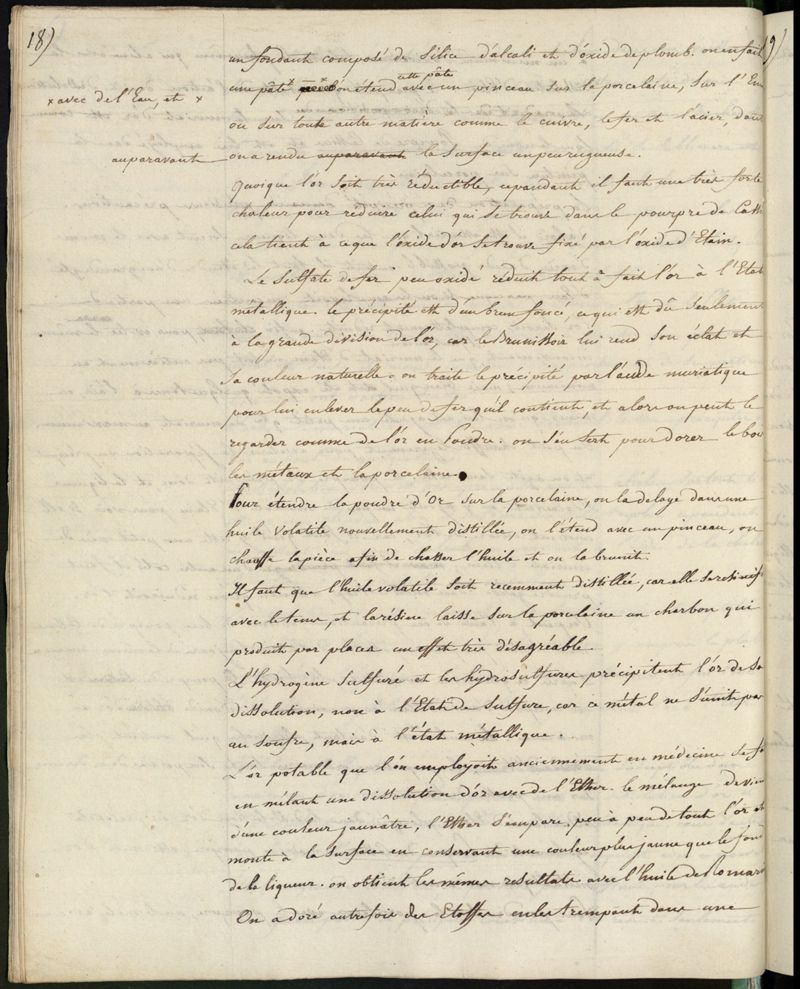 18)
un fondant composé de Silice d'alcali et d'óxide de plomb. on en fait
une pâte × on étend cette pâte avec un pinceau sur la porcelaine, sur l'Em
× avec de l'Eau, et ×
ou sur toute autre matière comme le cuivre, le fer et l'acier, dont
auparavant on a rendu auparavant la surface un peu rugueuse.
Quoique l'or soit très réductible, cependant il faut une très forte
chaleur pour réduire celui qui se trouve dans le pourpre de Cass
cela tient à ce que l'óxide d'or se trouve fixé par l'oxide d'Etain.
Le Sulfate de fer peu oxidé réduit tout à fait l'or à l'Etat
métallique. le précipité est d'un brun foncé, ce qui est dû seulement
à la grande division de l'or, car le Brunissoir lui rend son éclat et
sa couleur naturelle. on traite le précipité par l'acide muriatique
pour lui enlever le peu de fer qu'il contient, et alors on peut le
regarder comme de l'or en Poudre. on s'en sert pour dorer le boi
les métaux et la porcelaine.
Pour étendre la poudre d'Or sur la porcelaine, on la delaye dans une
huile volatile nouvellement distillée, on l'étend avec un pinceau, on
chauffe la pièce afin de chasser l'huile et on la brunit.
Il faut que l'huile volatile soit recemment distillée, car elle se résinif
avec le tems, et la résine laisse sur la porcelaine un charbon qui
produit par places un effet très désagréable.
L'hydrogène Sulfuré et les hydrosulfures précipitent l'or de sa
dissolution, non à l'Etat de Sulfure, car ce métal ne s'unit pas
au soufre, mais à l'état métallique.
L'or potable que l'on employoit anciennement en médecine se fa
en mêlant une dissolution d'or avec de l'Ether. le mélange devien
d'une couleur jaunâtre, l'Ether s'empare peu à peu de tout l'or et
monte à la surface en conservant une couleur plus jaune que le fond
de la liqueur. on obtient les mêmes resultats avec l'huile de Romari
On a doré autrefois des Etoffes en les trempant dans une